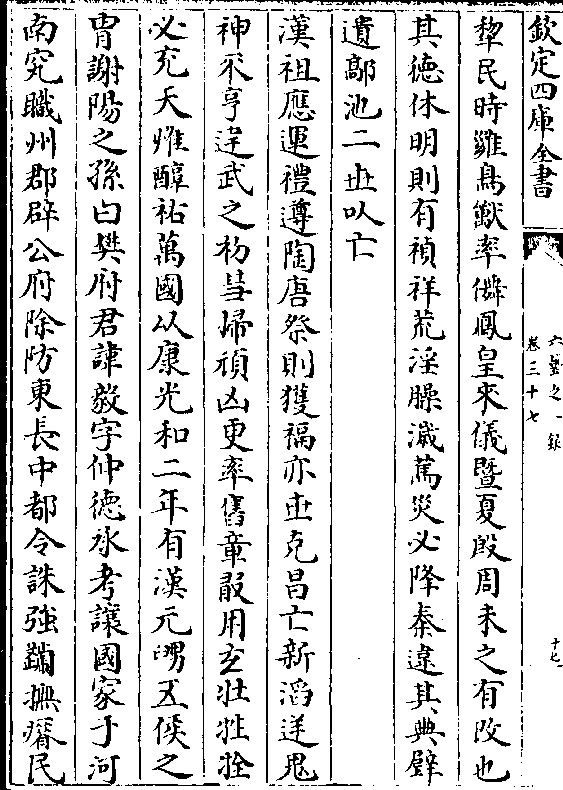 欽定四庫全書
六藝之一錄
卷三十七
十七
犂民時雍鳥獸率儛鳳皇來儀暨夏殷周未之有改也
其徳休明則有禎祥荒淫臊濊篤災必降秦違其典璧
遺鄗池二世以亡
漢祖應運禮遵陶唐祭則獲福亦世克昌亡新滔逆鬼
神不亨建武之初彗埽頑凶更率舊章敢用玄牡牲牷
必充天惟醇祐萬國以康光和二年有漢元舅五侯之
胄謝陽之孫曰樊府君諱毅字仲徳承考讓國家于河
南究職州郡辟公府除防東長中都令誅強𨷲撫瘠民